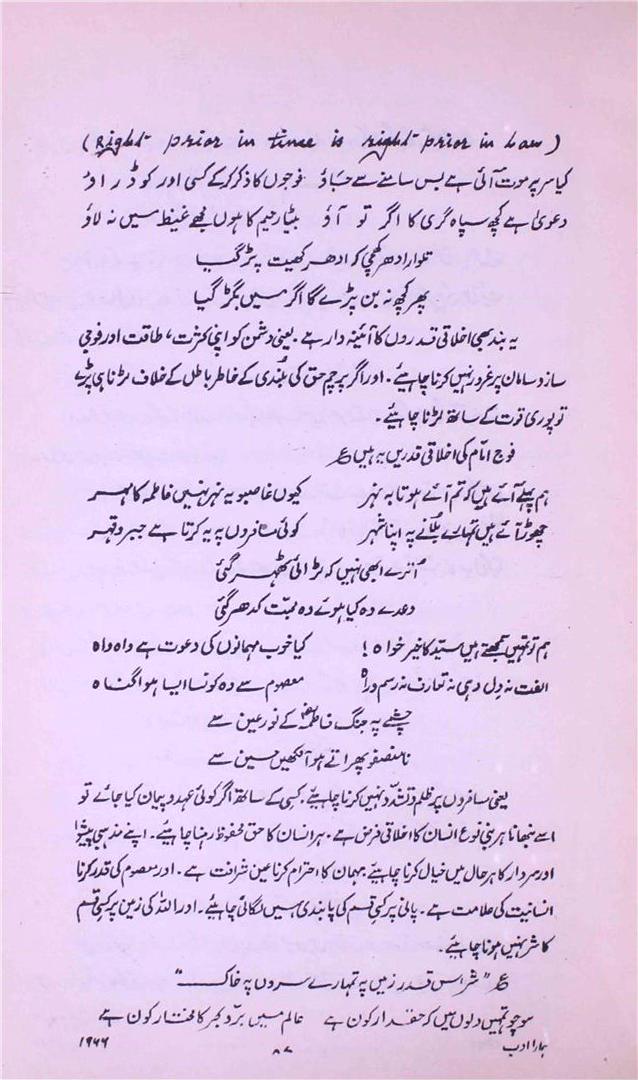 (Right prior in time is right prior in Law)
کیا سر پر موت آئی ہے بس سامنے سے جاؤ فوجوں کا ذکر کر کے کسی اور کو ڈراؤ
دعویٰ ہے کچھ سپاہ گری کا اگر تو آؤ بیٹا رحیم کا ہوں مجھے غیظ میں نہ لاؤ
تلوار ادھر کھچی کہ ادھر کھیت پڑ گیا
پھر کچھ نہ بن پڑے گا اگر میں بگڑ گیا
یہ بند بھی اخلاقی قدروں کا آئینہ دار ہے۔ یعنی دشمن کو اپنی کثرت، طاقت اور فوجی
ساز و سامان پر غرور نہیں کرنا چاہیئے۔ اور اگر پرچم حق کی بلندی کے خاطر باطل کے خلاف لڑنا ہی پڑے
تو پوری قوت کے ساتھ لڑنا چاہیئے۔
فوج امام کی اخلاقی قدریں یہ ہیں ؏
ہم پہلے آئے ہیں کہ تم آئے ہو تا بہ نہر کیوں غاصبو یہ نہر نہیں فاطمہ کا مہر
چھوڑ آئے ہیں تمہارے بلانے پہ اپنا شہر کوئی مسافروں پہ یہ کرتا ہے جبر و قہر
اترے ابھی نہیں کہ لڑائی ٹھہر گئی
وعدے وہ کیا ہوئے وہ محبت کدھر گئی
ہم تو تمہیں سمجھتے ہیں سید کا خیر خواہ! کیا خوب مہمانوں کی دعوت ہے واہ واہ
الفت نہ دل دہی نہ تعارف نہ رسم و راہ معصوم سے وہ کونسا ایسا ہوا گناہ
چشمے پہ جنگ فاطمہؑ کے نور عین سے
نا منصفو پھراتے ہو آنکھیں حسین سے
یعنی مسافروں پر ظلم و تشدد نہیں کرنا چاہیئے۔ کسی کے ساتھ اگر کوئی عہد و پیمان کیا جائے تو
اسے نبھانا ہر بنی نوع انسان کا اخلاقی فرض ہے۔ ہر انسان کا حق محفوظ رہنا چاہیئے۔ اپنے مذہبی پیشوا
اور سردار کا ہر حال میں خیال کرنا چاہیئے۔ مہمان کا احترام کرنا عین شرافت ہے۔ اور معصوم کی قدر کرنا
انسانیت کی علامت ہے۔ پانی پر کسی قسم کی پابندی نہیں لگانی چاہیئے۔ اور اللہ کی زمین پر کسی قسم
کا شر نہیں ہونا چاہیئے۔
؏ "شر اس قدر زمیں پہ تمہارے سروں پہ خاک"
سوچو تمہیں دلوں میں کہ حقدار کون ہے عالم میں بر و بحر کا مختار کون ہے
ہمارا ادب ۸۷ ۱۹۶۶